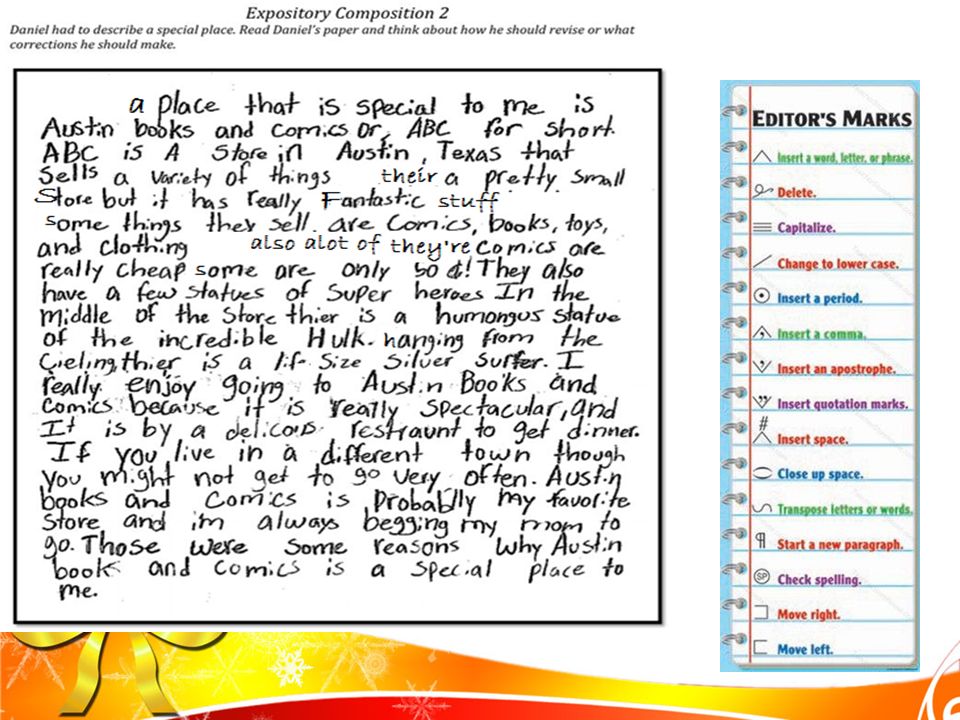 Expository Composition 2
Daniel had to describe a special place. Read Daniel's paper and think about how he should revise or what
corrections he should make.
a place that is special to me is
Austin books and comics or, ABC for short.
ABC is A Store in Austin, Texas that
Sells a variety of things their a pretty small
Store but it has really Fantastic stuff
some things they sell are Comics, books, toys,
and clothing also alot of they're comics are
really cheap some are only 50 ¢! They also
have a few statues of super heroes In the
middle of the store thier is a humongus statue
of the incredible Hulk. hanging from the
Cieling, thier is a life Size Silver Surfer. I
really enjoy going to Austin Books and
Comics because it is really spectacular, and
It is by a delicous restraunt to get dinner.
If you live in a different town though
you might not get to go very often. Austin
books and Comics is Probablly my favorite
Store and i'm always begging my mom to
go. Those were some reasons why Austin
books and comics is a special place to
me.
EDITOR'S MARKS
Insert a word, letter, or phrase.
Delete.
Capitalize.
Change to lower case.
Insert a period.
Insert a comma.
Insert an apostrophe.
Insert quotation marks.
# Insert space.
Close up space.
Transpose letters or words.
¶ Start a new paragraph.
SP Check spelling.
Move right.
Move left.